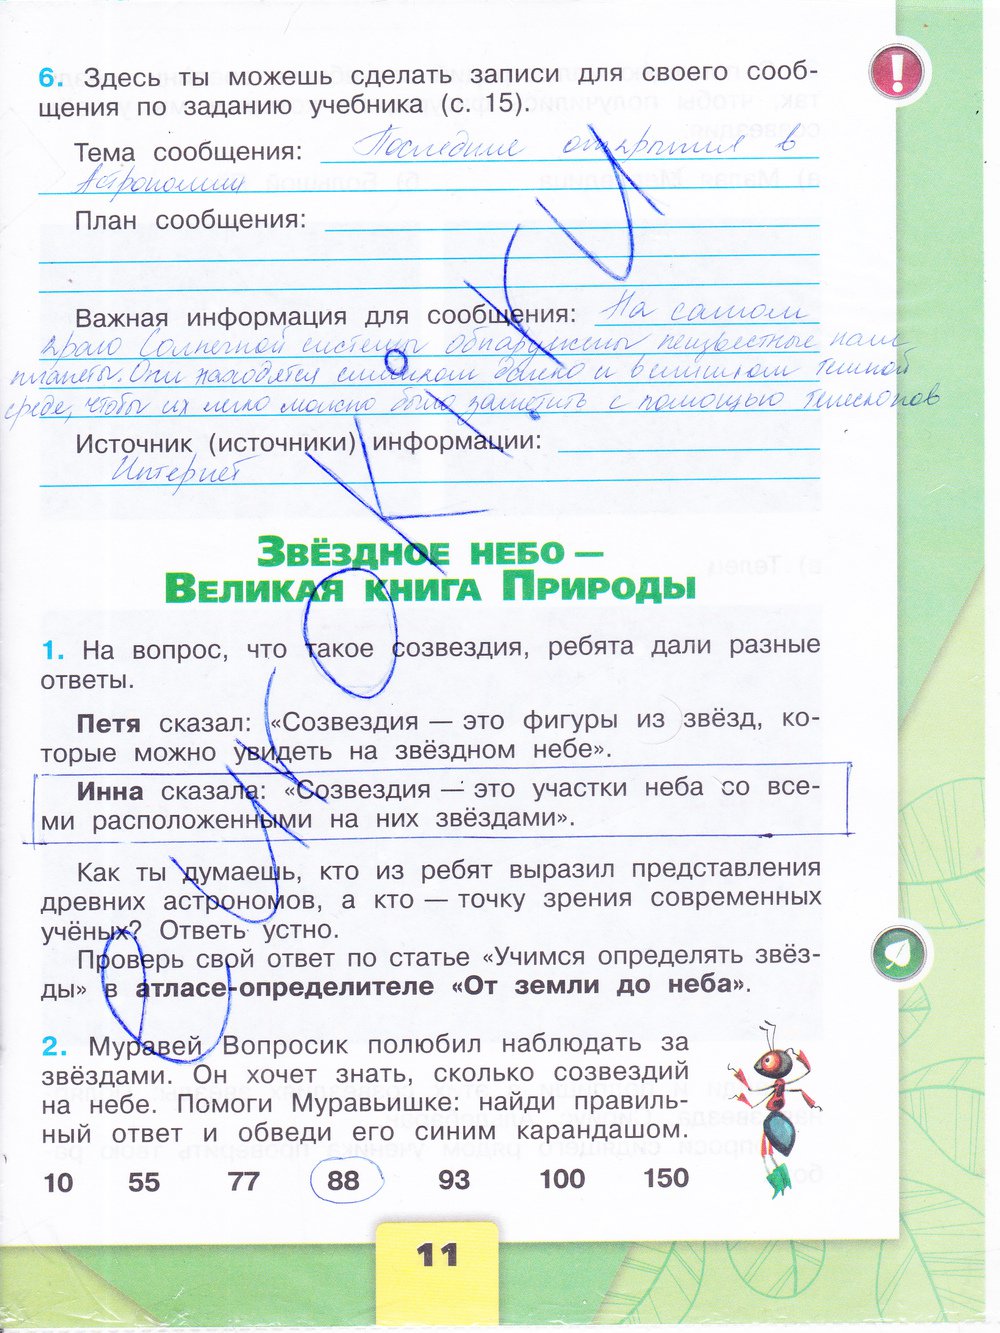 6. Здесь ты можешь сделать записи для своего сооб-
щения по заданию учебника (с. 15).
Тема сообщения: Последние открытия в
Астрономии
План сообщения:
Важная информация для сообщения: На самом
краю Солнечной системы обнаружены неизвестные нам
планеты. Они находятся слишком далеко и в слишком темной
среде, чтобы их легко можно было заметить с помощью телескопов
Источник (источники) информации:
Интернет
ЗВЁЗДНОЕ НЕБО —
ВЕЛИКАЯ КНИГА ПРИРОДЫ
1. На вопрос, что такое созвездия, ребята дали разные
ответы.
Петя сказал: «Созвездия — это фигуры из звёзд, ко-
торые можно увидеть на звёздном небе».
Инна сказала: «Созвездия — это участки неба со все-
ми расположенными на них звёздами».
Как ты думаешь, кто из ребят выразил представления
древних астрономов, а кто — точку зрения современных
учёных? Ответь устно.
Проверь свой ответ по статье «Учимся определять звёз-
ды» в атласе-определителе «От земли до неба».
2. Муравей Вопросик полюбил наблюдать за
звёздами. Он хочет знать, сколько созвездий
на небе. Помоги Муравьишке: найди правиль-
ный ответ и обведи его синим карандашом.
10 55 77 88 93 100 150
11